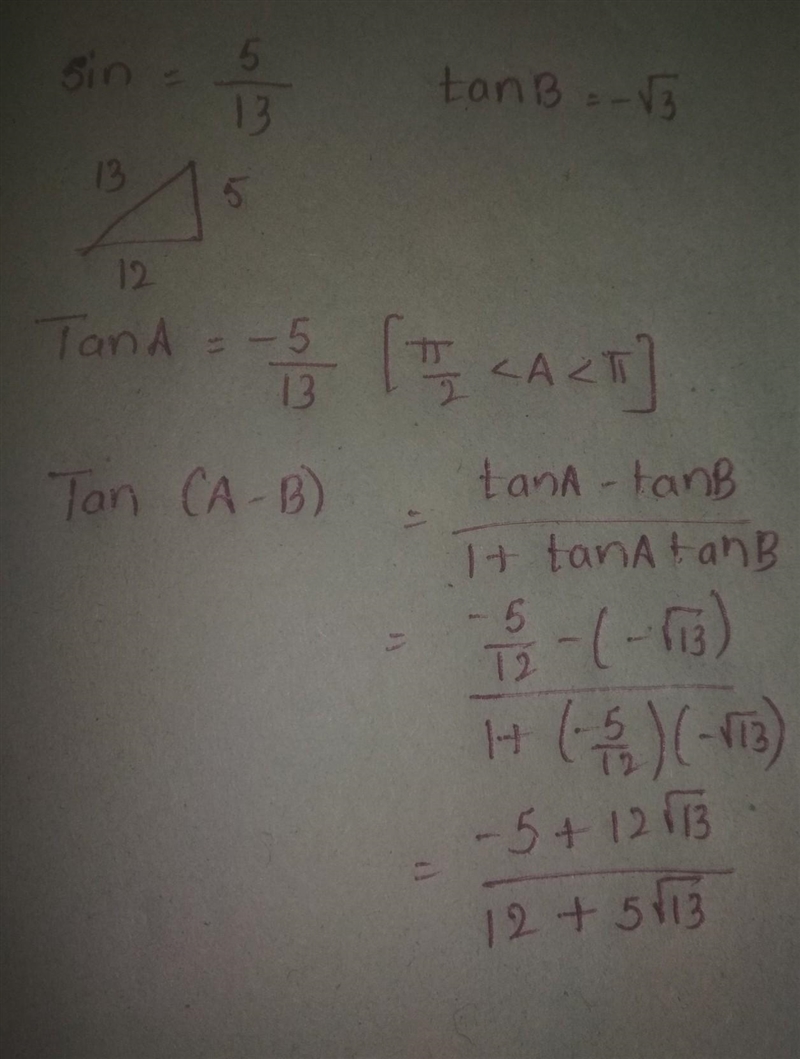 sin = 5/13 tanB = -√3
13 5
12
TanA = -5/13 [π/2 < A < π]
Tan (A - B) = tanA - tanB / 1 + tanA tanB
= -5/12 - (-√13) / 1 + (-5/12)(-√13)
= -5 + 12√13 / 12 + 5√13